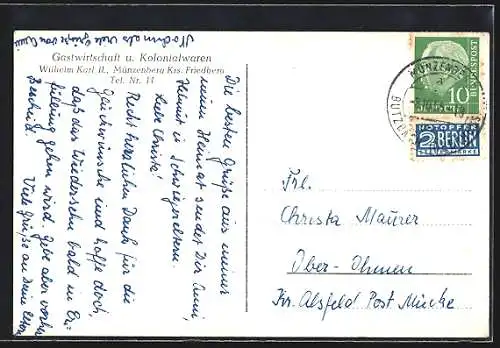 Nochmals viele Grüße von Anni
Gastwirtschaft u. Kolonialwaren
Wilhelm Karl II., Münzenberg Krs. Friedberg
Tel. Nr. 14
Die besten Grüße aus meiner
neuen Heimat sendet Dir Anni,
Helmut u. Schwiegereltern.
Liebe Christa!
Recht herzlichen Dank für die
Glückwünsche und hoffe doch,
daß das Wiedersehn bald in Er-
füllung gehen wird. Gebe aber vorher
Bescheid.
Viele Grüße an Deine Eltern
MÜNZENBERG
BUTZBACH
DEUTSCHE BUNDESPOST
10
NOTOPFER
2 BERLIN
STEUERMARKE
Frl.
Christa Maurer
Ober-Ohmen
Kr. Alsfeld Post Mücke